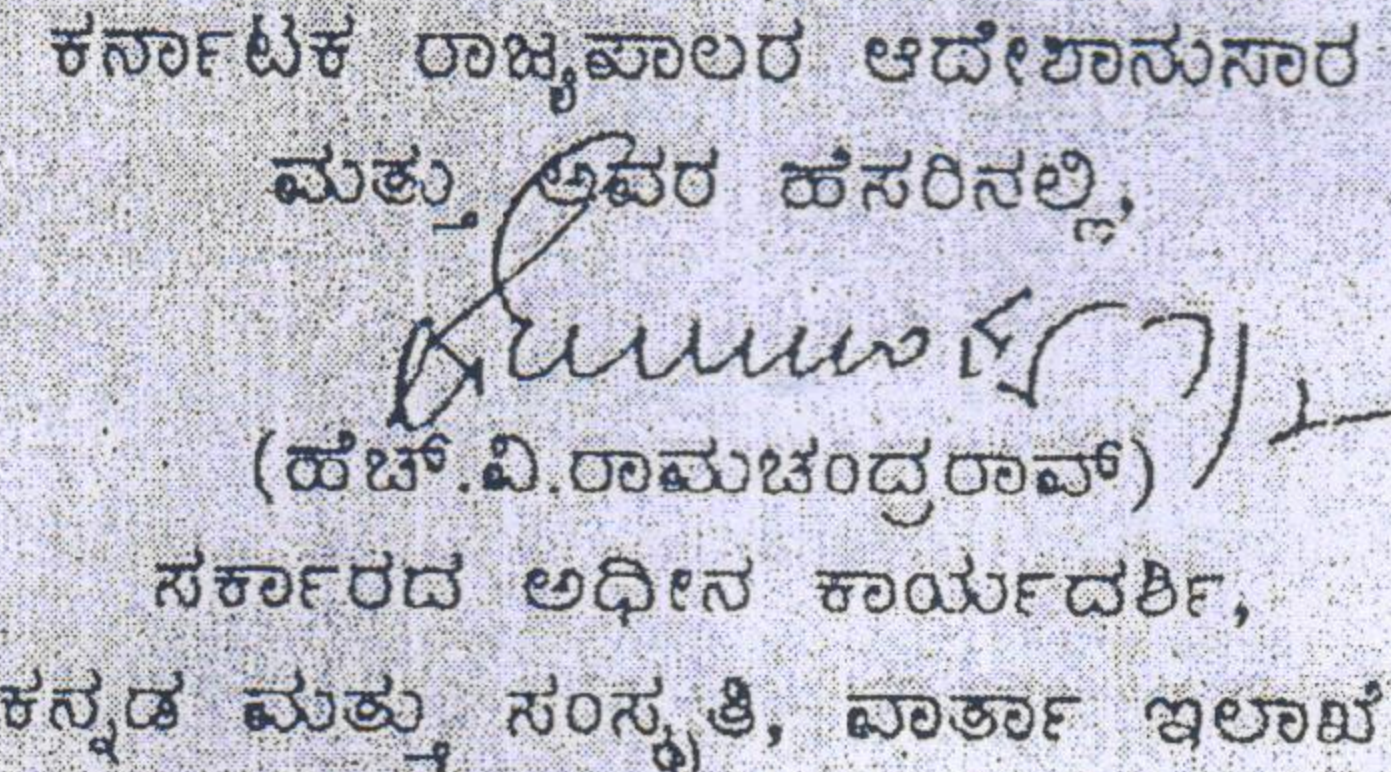 ಕರ್ನಾಟಕ ರಾಜ್ಯಪಾಲರ ಆದೇಶಾನುಸಾರ
ಮತ್ತು ಅವರ ಹೆಸರಿನಲ್ಲಿ,
(ಹೆಚ್.ವಿ.ರಾಮಚಂದ್ರರಾವ್)
ಸರ್ಕಾರದ ಅಧೀನ ಕಾರ್ಯದರ್ಶಿ,
ಕನ್ನಡ ಮತ್ತು ಸಂಸ್ಕೃತಿ, ವಾರ್ತಾ ಇಲಾಖೆ